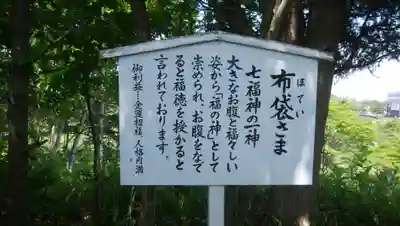 ほてい
布袋さま
七福神の一神
大きなお腹と福々しい
姿から「福の神」として
崇められ、お腹をなで
ると福徳を授かると
言われております。
御利益＝金運招福、人格円満